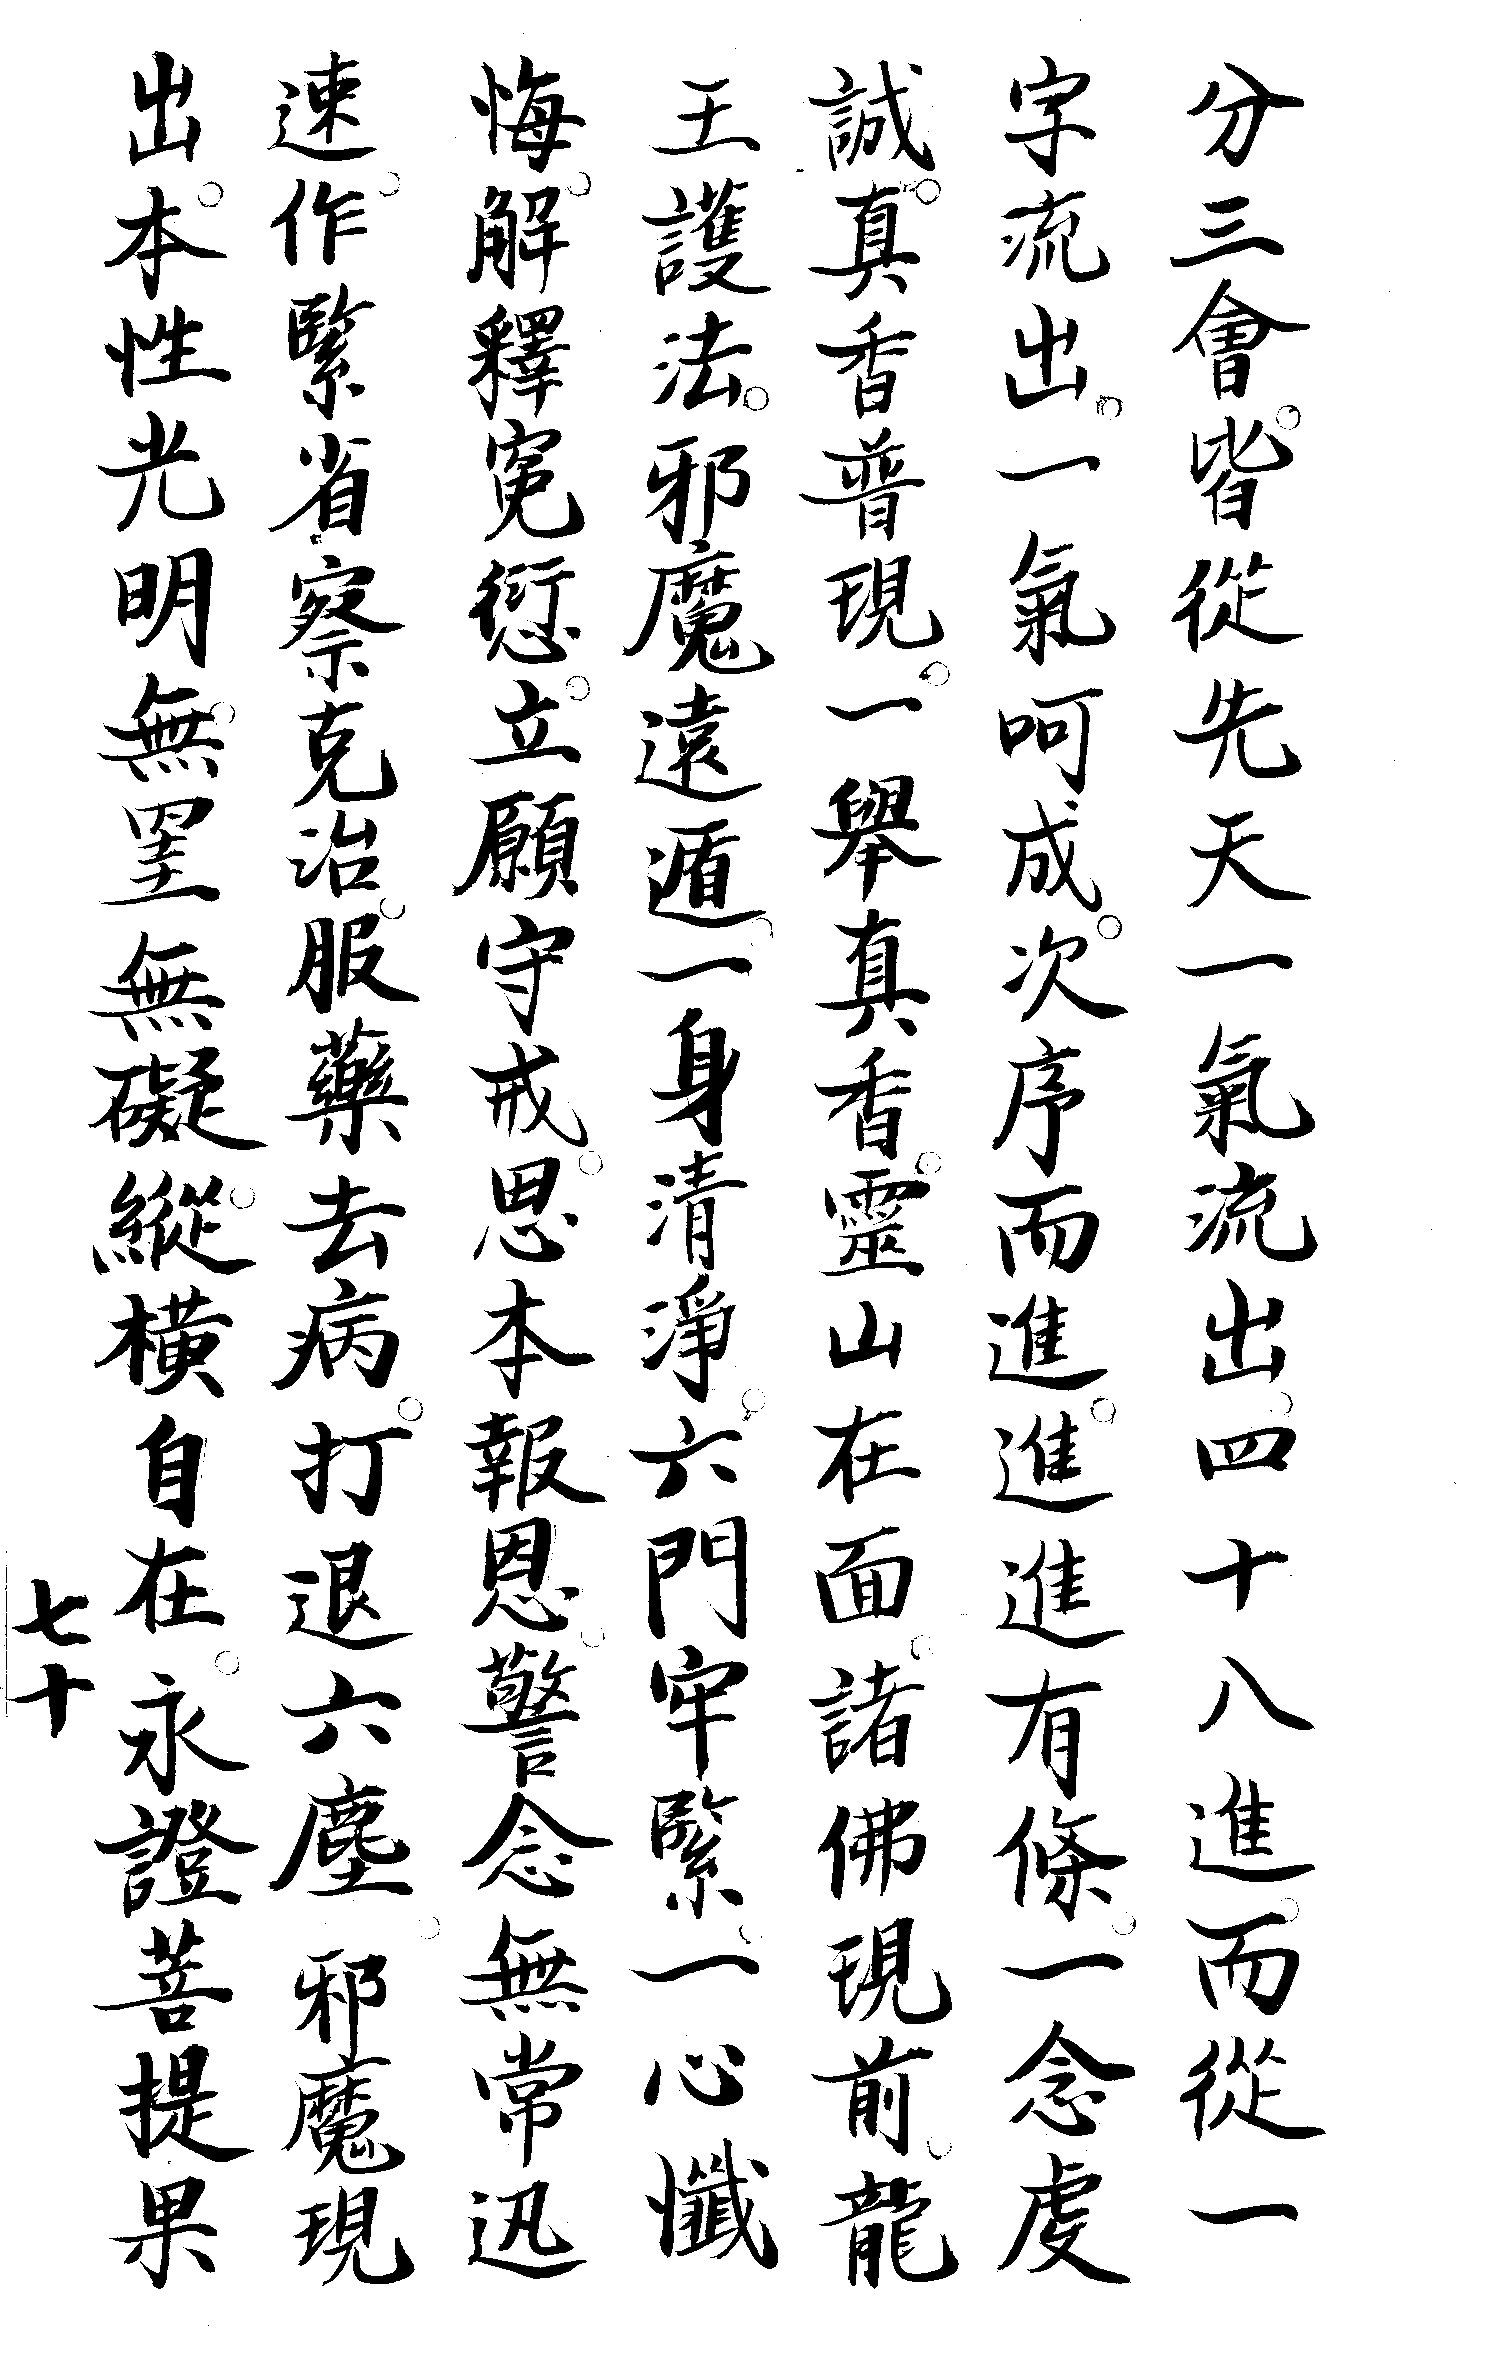 分三會。皆從先天一氣流出。四十八進。而從一
字流出。一氣呵成。次序而進。進進有條。一念虔
誠。真香普現。一舉真香。靈山在面。諸佛現前。龍
王護法。邪魔遠遁。一身清淨。六門牢緊。一心懺
悔。解釋冤愆。立願守戒。思本報恩。警念無常迅
速。作緊省察克治。服藥去病。打退六塵。邪魔現
出。本性光明。無罣無礙。縱橫自在。永證菩提果
七十